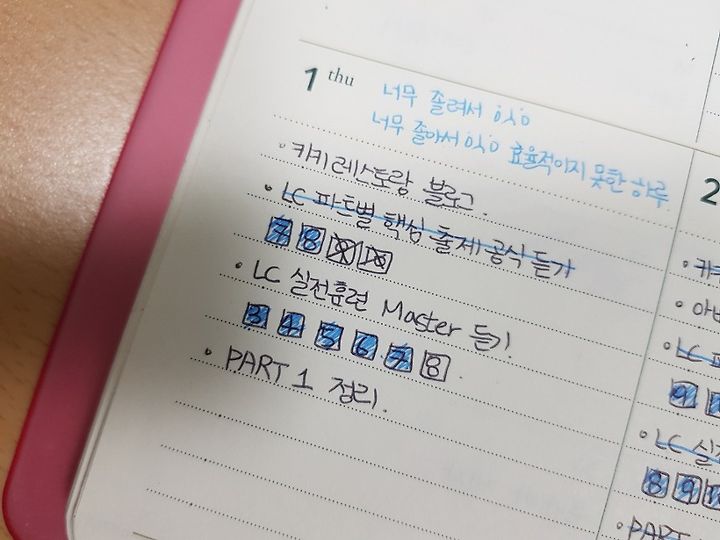 1 thu
너무 졸려서 ㅇㅅㅇ
너무 졸아서 ㅇㅅㅇ 효율적이지 못한 하루
• 키키레스토랑 블로그.
• LC 파트별 핵심 출제 공식 듣기
7 8
• LC 실전훈련 Master 듣기!
3 4 5 6 7 8
• PART 1 정리.
2
8 9